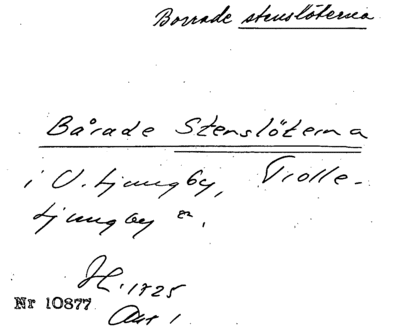 Borrade stenslöterna
Bårade Stenslöterna
i V. Ljungby, Trolle-
Ljungby sn.
1725
Nr 10877
Akt 1